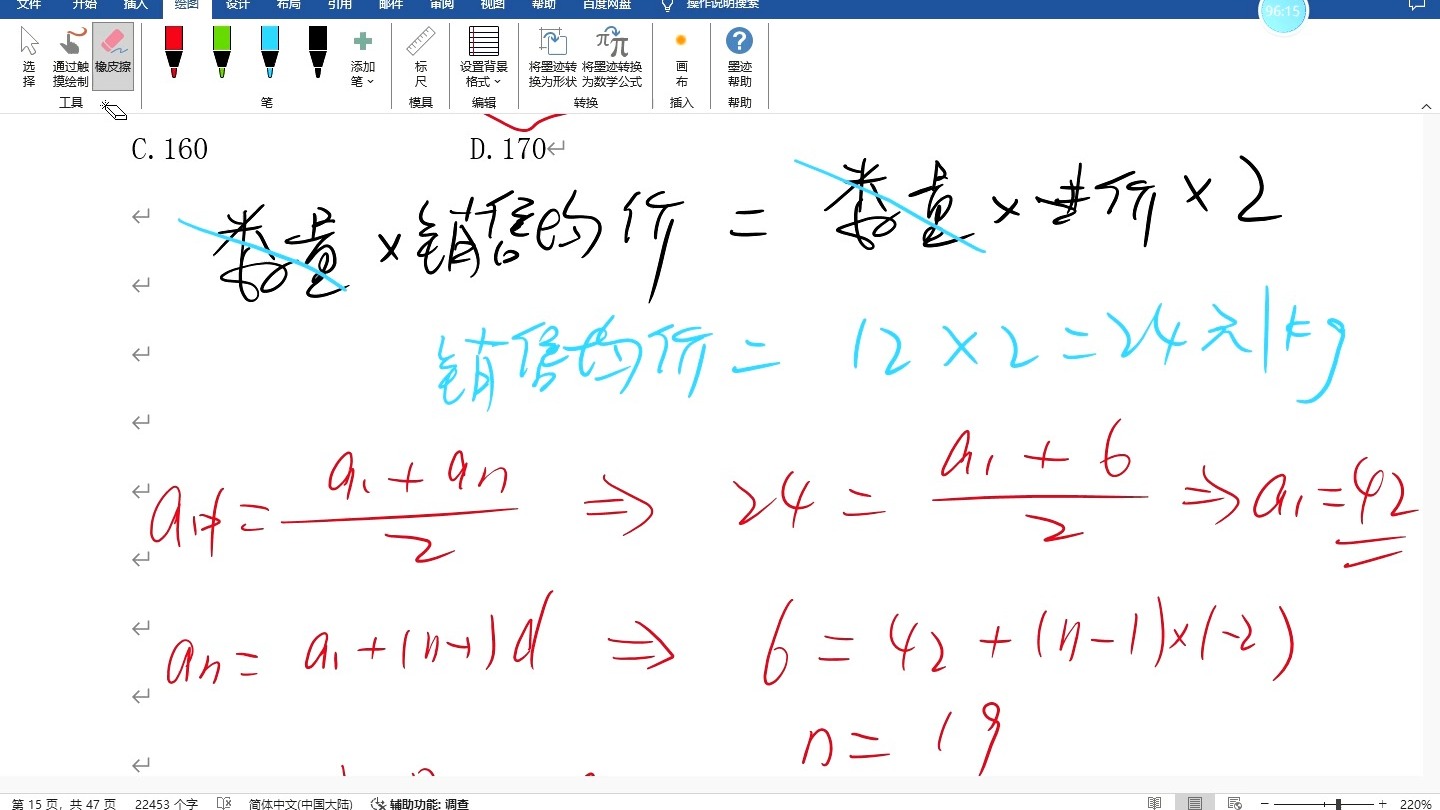 文件 开始 插入 绘图 设计 布局 引用 邮件 审阅 视图 帮助 百度网盘 操作说明搜索
96:15
选择 通过触摸绘制 橡皮擦 添加笔 标尺 设置背景格式 将墨迹转换为形状 将墨迹转换为数学公式 画布 墨迹帮助
工具 笔 模具 编辑 转换 插入 帮助
C.160 D.170
数量×销售均价=数量×进价×2
销售均价=12×2=24元/kg
a中=(a1+an)/2 ⇒ 24=(a1+6)/2 ⇒a1=42
an=a1+(n-1)d ⇒ 6=42+(n-1)×(-2)
n=19
第 15 页，共 47 页 22453 个字 简体中文(中国大陆) 辅助功能: 调查 220%